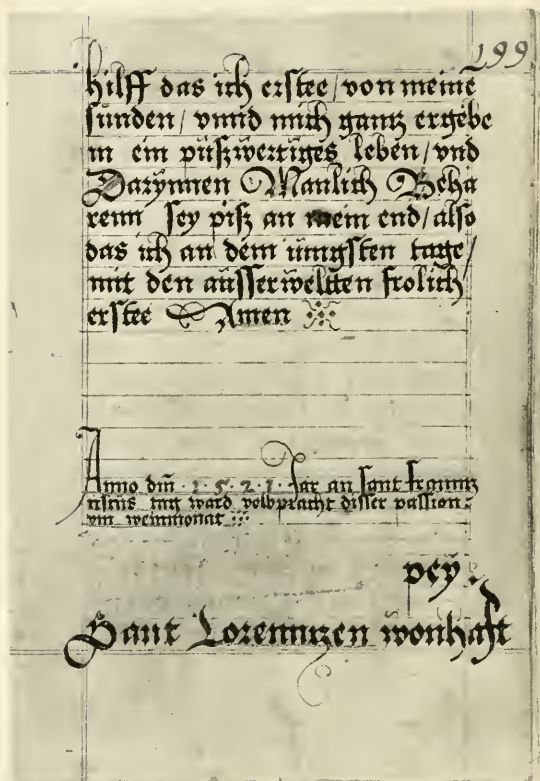 199
hilff das ich erstee / von meine
sunden / vnnd mich gantz ergebe
in ein püßwertiges leben / vnd
Darÿnnen Manlich Beha
renn sey piß an mein end / also
das ich an dem iüngsten tage /
mit den aüsserweltten frolich
erstee Amen
Anno dm̄ · 1 · 5 · 2 · 1 · Jar an sant Frannz
iscus tag ward volbpracht disser passion
ym weinmonat
peÿ
Sant Lorenntzen wonhaft